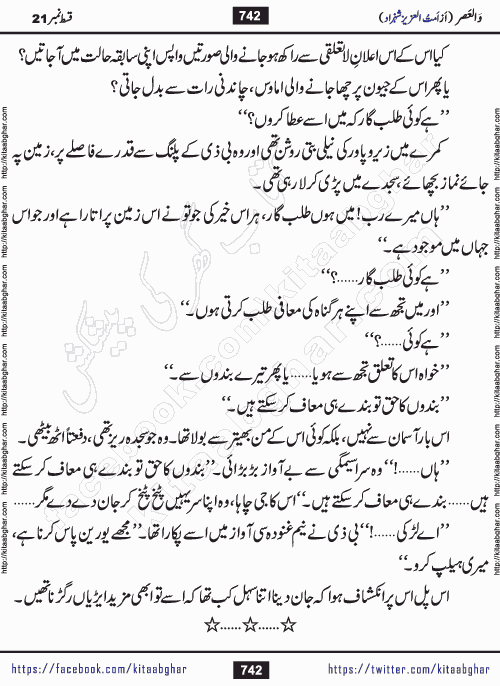 قسط نمبر 21
742
وَالعَصر (از اُمَتُ العزیز شہزاد)
کیا اس کے اس اعلانِ لاتعلقی سے راکھ ہو جانے والی صورتیں واپس اپنی سابقہ حالت میں آجاتیں؟
یا پھر اس کے جیون پر چھا جانے والی اماوس، چاندنی رات سے بدل جاتی؟
’’ہے کوئی طلب گار کہ میں اسے عطا کروں؟‘‘
کمرے میں زیرو پاور کی نیلی بتی روشن تھی اور وہ بی ذی کے پلنگ سے قدرے فاصلے پر، زمین پہ
جائے نماز بچھائے، سجدے میں پڑی کرلا رہی تھی۔
’’ہاں میرے رب! میں ہوں طلب گار، ہر اس خیر کی جو تو نے اس زمین پر اتارا ہے اور جو اس
جہاں میں موجود ہے۔‘‘
’’ہے کوئی طلب گار……؟‘‘
’’اور میں تجھ سے اپنے ہر گناہ کی معافی طلب کرتی ہوں۔‘‘
’’ہے کوئی……؟‘‘
’’خواہ اس کا تعلق تجھ سے ہو یا……یا پھر تیرے بندوں سے۔‘‘
’’بندوں کا حق تو بندے ہی معاف کر سکتے ہیں۔‘‘
اس بار آسمان سے نہیں، بلکہ کوئی اس کے من بھیتر سے بولا تھا۔ وہ جو سجدہ ریز تھی، دفعتاً اٹھ بیٹھی۔
’’ہاں……!‘‘ وہ سراسیمگی سے بے آواز بڑبڑائی۔ ’’بندوں کا حق تو بندے ہی معاف کر سکتے
ہیں……بندے ہی معاف کر سکتے ہیں۔‘‘ اس کا جی چاہا، وہ اپنا سر یہیں پٹخ پٹخ کر جان دے دے مگر……
’’اے لڑکی……!‘‘ بی ذی نے نیم غنودہ سی آواز میں اسے پکارا تھا۔ ’’مجھے یورین پاس کرنا ہے،
میری ہیلپ کرو۔‘‘
اس پل اس پر انکشاف ہوا کہ جان دینا اتنا سہل کب تھا کہ اسے تو ابھی مزید ایڑیاں رگڑنا تھیں۔
☆……☆……☆
https://facebook.com/kitaabghar
742
https://twitter.com/kitaabghar
http://kitaabghar.com http://kitaabghar.com http://kitaabghar.com http://kitaabghar.com http://kitaabghar.com http://kitaabghar.com
http://kitaabghar.com http://kitaabghar.com http://kitaabghar.com http://kitaabghar.com http://kitaabghar.com http://kitaabghar.com